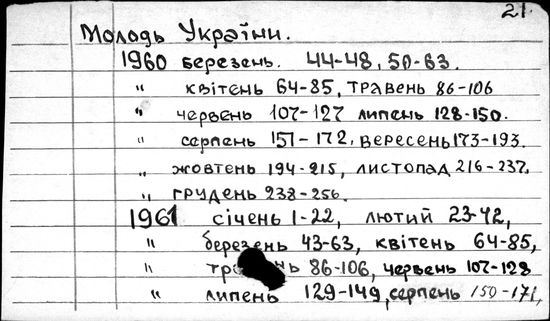 21.
Молодь України.
1960 березень. 44-48, 50-63.
" квітень 64-85, травень 86-106
" червень 107-127 липень 128-150.
" серпень 151-172, вересень 173-193.
" жовтень 194-215, листопад 216-237,
" грудень 238-256.
1961 січень 1-22, лютий 23-42,
" березень 43-63, квітень 64-85,
" 86-106, червень 107-128
" липень 129-149, серпень 150-171,